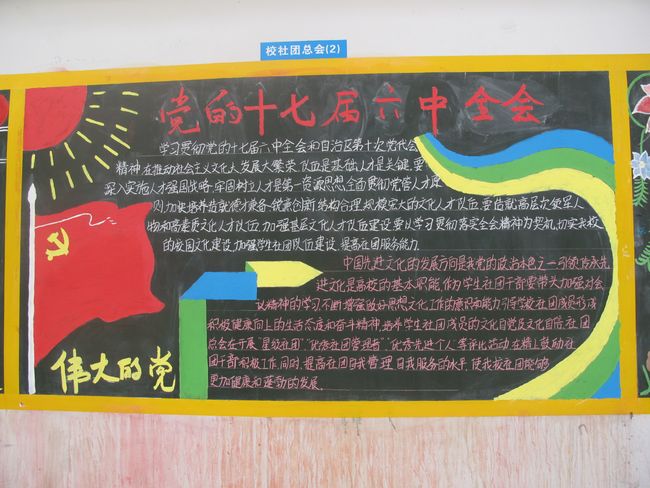 校社团总会(2)
党的十七届六中全会
学习贯彻党的十七届六中全会和自治区第十次党代会
精神,在推动社会主义文化大发展大繁荣,队伍是基础,人才是关键,要
深入实施人才强国战略,牢固树立人才是第一资源思想,全面贯彻党管人才原
则,加快培养造就德才兼备、锐意创新、结构合理、规模宏大的文化人才队伍,要造就高层次领军人
物和高素质文化人才队伍,加强基层文化人才队伍建设,要以学习贯彻落实全会精神为契机,切实我校
的校园文化建设,加强学生社团队伍建设,提高社团服务能力.
中国先进文化的发展方向是我党的政治本色之一,引领传承先
进文化是高校的基本职能,作为学生社团干部要带头加强对会
议精神的学习,不断增强做好思想文化工作的意识和能力,引导学校社团成员形成
积极健康向上的生活态度和奋斗精神,培养学生社团成员的文化自觉及文化自信,社团
总会在开展"星级社团""优秀社团管理者""优秀先进个人"等评比活动,在精上鼓励社
团干部积极工作,同时,提高社团自我管理自我服务的水平,使我校社团能够
更加健康和蓬勃的发展.
伟大的党